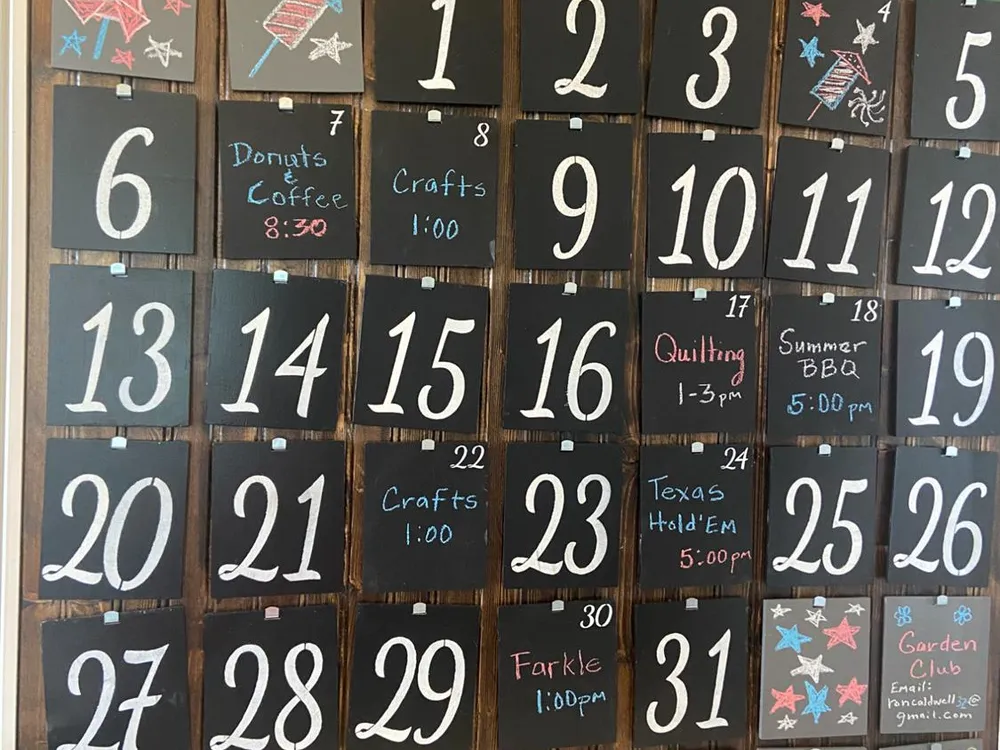 1
2
3
4
5
6
7
Donuts
&
Coffee
8:30
8
Crafts
1:00
9
10
11
12
13
14
15
16
17
Quilting
1-3pm
18
Summer
BBQ
5:00 pm
19
20
21
22
Crafts
1:00
23
24
Texas
Hold'Em
5:00pm
25
26
27
28
29
30
Farkle
1:00pm
31
Garden
Club
Email:
gmail.com